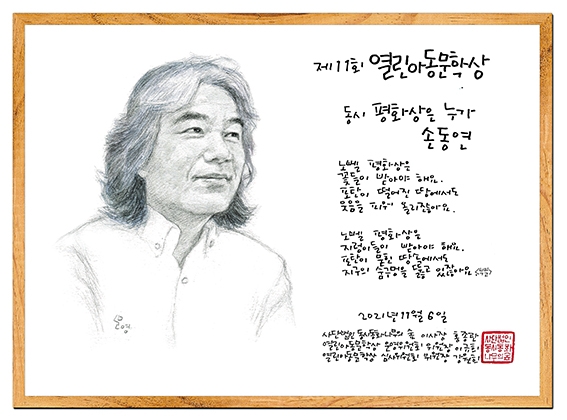 제11회 열린아동문학상
동시 평화상은 누가
손동연
노벨 평화상은
꽃들이 받아야 해요.
포탄이 떨어진 땅에서도
웃음을 피워 올리잖아요.
노벨 평화상은
지렁이들이 받아야 해요.
포탄이 묻힌 땅속에서도
지구의 숨구멍을 뚫고 있잖아요
2021년 11월 6일
사단법인 동시동화나무의 숲 이사장 홍종관
열린아동문학상 운영위원회 위원장
열린아동문학상 심사위원회 위원장
사단법인
동시동화
나무의숲